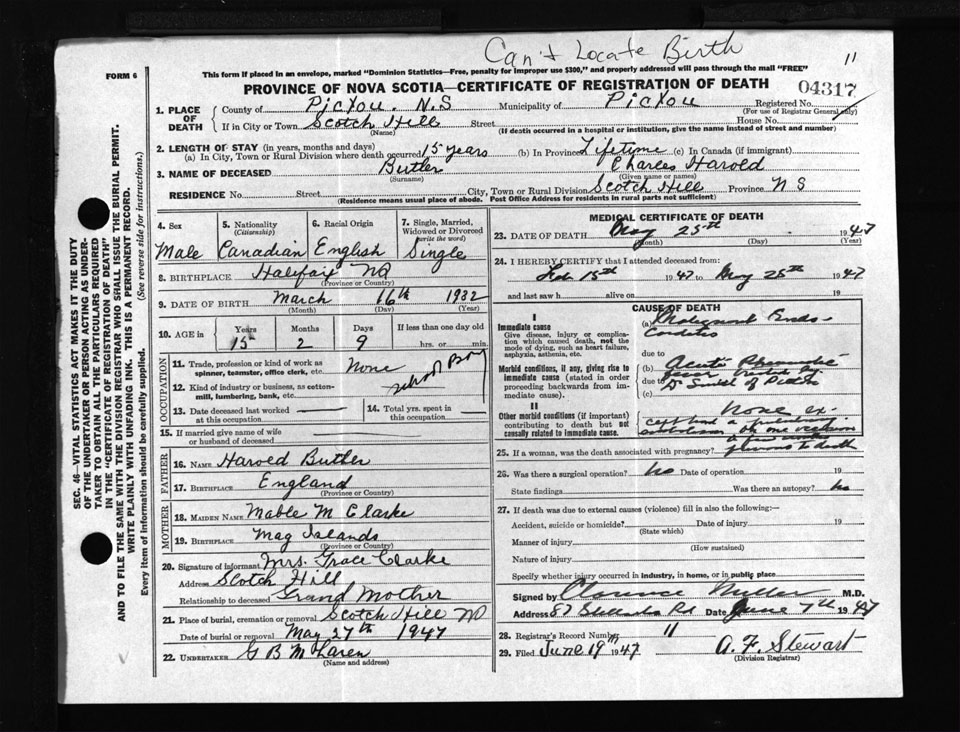 Can't Locate Birth
11
FORM 6
This form if placed in an envelope, marked "Dominion Statistics—Free, penalty for improper use $300," and properly addressed will pass through the mail "FREE"
PROVINCE OF NOVA SCOTIA—CERTIFICATE OF REGISTRATION OF DEATH
04317
1. PLACE OF DEATH
County of Pictou. N.S Municipality of Pictou Registered No.
(For use of Registrar General only)
If in City or Town Scotch Hill Street House No.
(Name) (If death occurred in a hospital or institution, give the name instead of street and number)
2. LENGTH OF STAY (in years, months and days)
(a) In City, Town or Rural Division where death occurred 15 years (b) In Province Lifetime (c) In Canada (if immigrant)
3. NAME OF DECEASED Butler Charles Harold
(Surname) (Given name or names)
RESIDENCE No. Street City, Town or Rural Division Scotch Hill Province N S
(Residence means usual place of abode. Post Office Address for residents in rural parts not sufficient)
4. Sex
Male
5. Nationality
(Citizenship)
Canadian
6. Racial Origin
English
7. Single, Married, Widowed or Divorced
(write the word)
Single
8. BIRTHPLACE Halifax NS
(Province or Country)
9. DATE OF BIRTH March 16th 1932
(Month) (Day) (Year)
10. AGE in Years Months Days If less than one day old
15 2 9 hrs. or min.
OCCUPATION
11. Trade, profession or kind of work as spinner, teamster, office clerk, etc. None
12. Kind of industry or business, as cotton-mill, lumbering, bank, etc. School Boy
13. Date deceased last worked at this occupation
14. Total yrs. spent in this occupation
15. If married give name of wife or husband of deceased
FATHER
16. NAME Harold Butler
17. BIRTHPLACE England
(Province or Country)
MOTHER
18. MAIDEN NAME Mable M Clarke
19. BIRTHPLACE Mag Islands
(Province or Country)
20. Signature of informant Mrs. Grace Clarke
Address Scotch Hill
Relationship to deceased Grand Mother
21. Place of burial, cremation or removal Scotch Hill NS
Date of burial or removal May 27th 1947
22. UNDERTAKER G B McLaren
(Name and address)
MEDICAL CERTIFICATE OF DEATH
23. DATE OF DEATH May 25th 1947
(Month) (Day) (Year)
24. I HEREBY CERTIFY that I attended deceased from:
Feb 15th 1947 to May 25th 1947
and last saw h alive on 19
CAUSE OF DEATH
I
Immediate cause
Give disease, injury or complication which caused death, not the mode of dying, such as heart failure, asphyxia, asthenia, etc.
(a) Malignant Endo-
Carditis
due to
Morbid conditions, if any, giving rise to immediate cause (stated in order proceeding backwards from immediate cause).
(b) Acute Rheumatic
Fever treated by
due to Dr Smith of Pictou
(c)
II
Other morbid conditions (if important) contributing to death but not causally related to immediate cause.
None ex-
cept had a
on one occasion
previous to death
25. If a woman, was the death associated with pregnancy?
26. Was there a surgical operation? No Date of operation 19
State findings Was there an autopsy? No
27. If death was due to external causes (violence) fill in also the following:—
Accident, suicide or homicide? Date of injury 19
(State which)
Manner of injury
(How sustained)
Nature of injury
Specify whether injury occurred in industry, in home, or in public place
Signed by Clarence Miller M.D.
Address Rd Date June 7th 1947
28. Registrar's Record Number 11
29. Filed June 19th 1947 A. F. Stewart
(Division Registrar)
SEC. 46—VITAL STATISTICS ACT MAKES IT THE DUTY
OF THE UNDERTAKER OR PERSON ACTING AS UNDER-
TAKER TO OBTAIN ALL THE PARTICULARS REQUIRED
IN THE "CERTIFICATE OF REGISTRATION OF DEATH"
AND TO FILE THE SAME WITH THE DIVISION REGISTRAR WHO SHALL ISSUE THE BURIAL PERMIT.
WRITE PLAINLY WITH UNFADING INK. THIS IS A PERMANENT RECORD.
Every item of information should be carefully supplied. (See reverse side for instructions.)